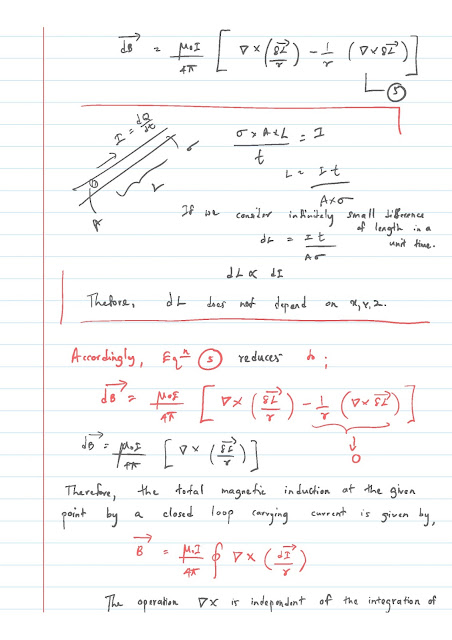 dB⃗ = μ₀I/4π [ ∇ × (δL⃗/r) − 1/r (∇ × δL⃗) ]
⑤
I = dQ/dt
σ
L
A
σ × A × L / t = I
L = I t / A × σ
If we consider infinitely small difference
of length in a
dL = I t / A σ
unit time.
dL ∝ dI
Therefore, dL does not depend on x, y, z.
Accordingly, Eqⁿ ⑤ reduces to ;
dB⃗ = μ₀I/4π [ ∇ × (δL⃗/r) − 1/r (∇ × δL⃗) ]
0
dB⃗ = μ₀I/4π [ ∇ × (δL⃗/r) ]
Therefore, the total magnetic induction at the given
point by a closed loop carrying current is given by,
B⃗ = μ₀I/4π ∮ ∇ × (dl⃗/r)
The operation ∇× is independent of the integration of